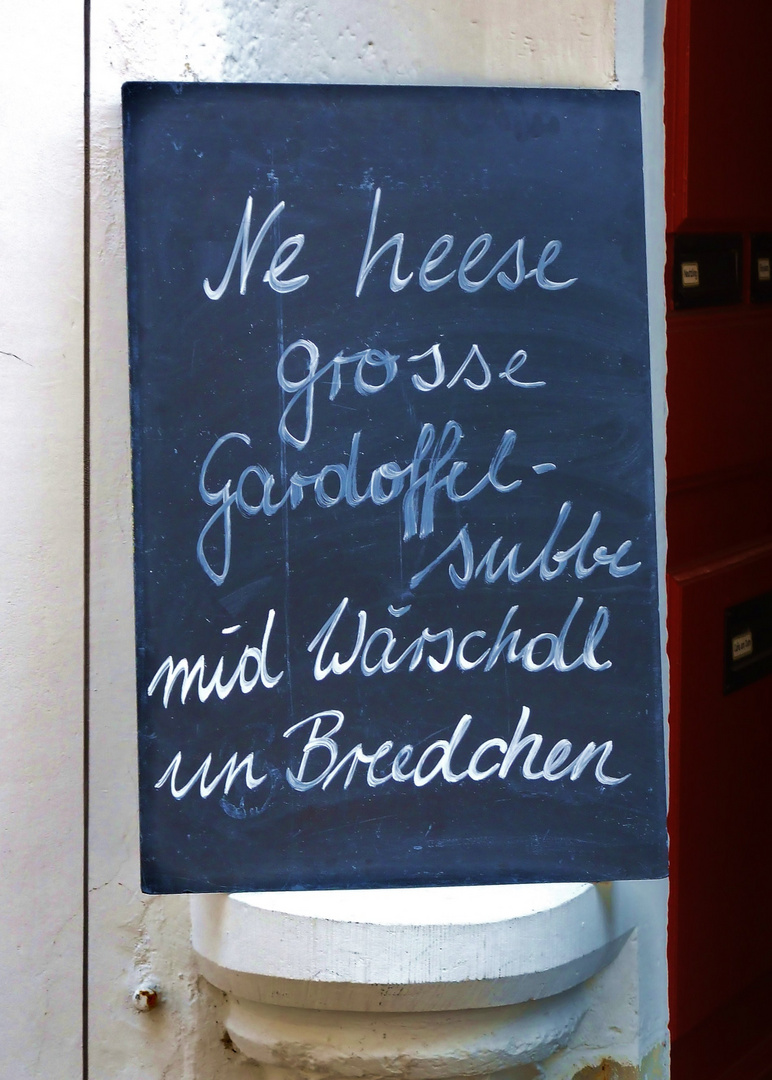 Ne heese
grosse
Gardoffel-
subbe
mid Wärschdl
un Breedchen